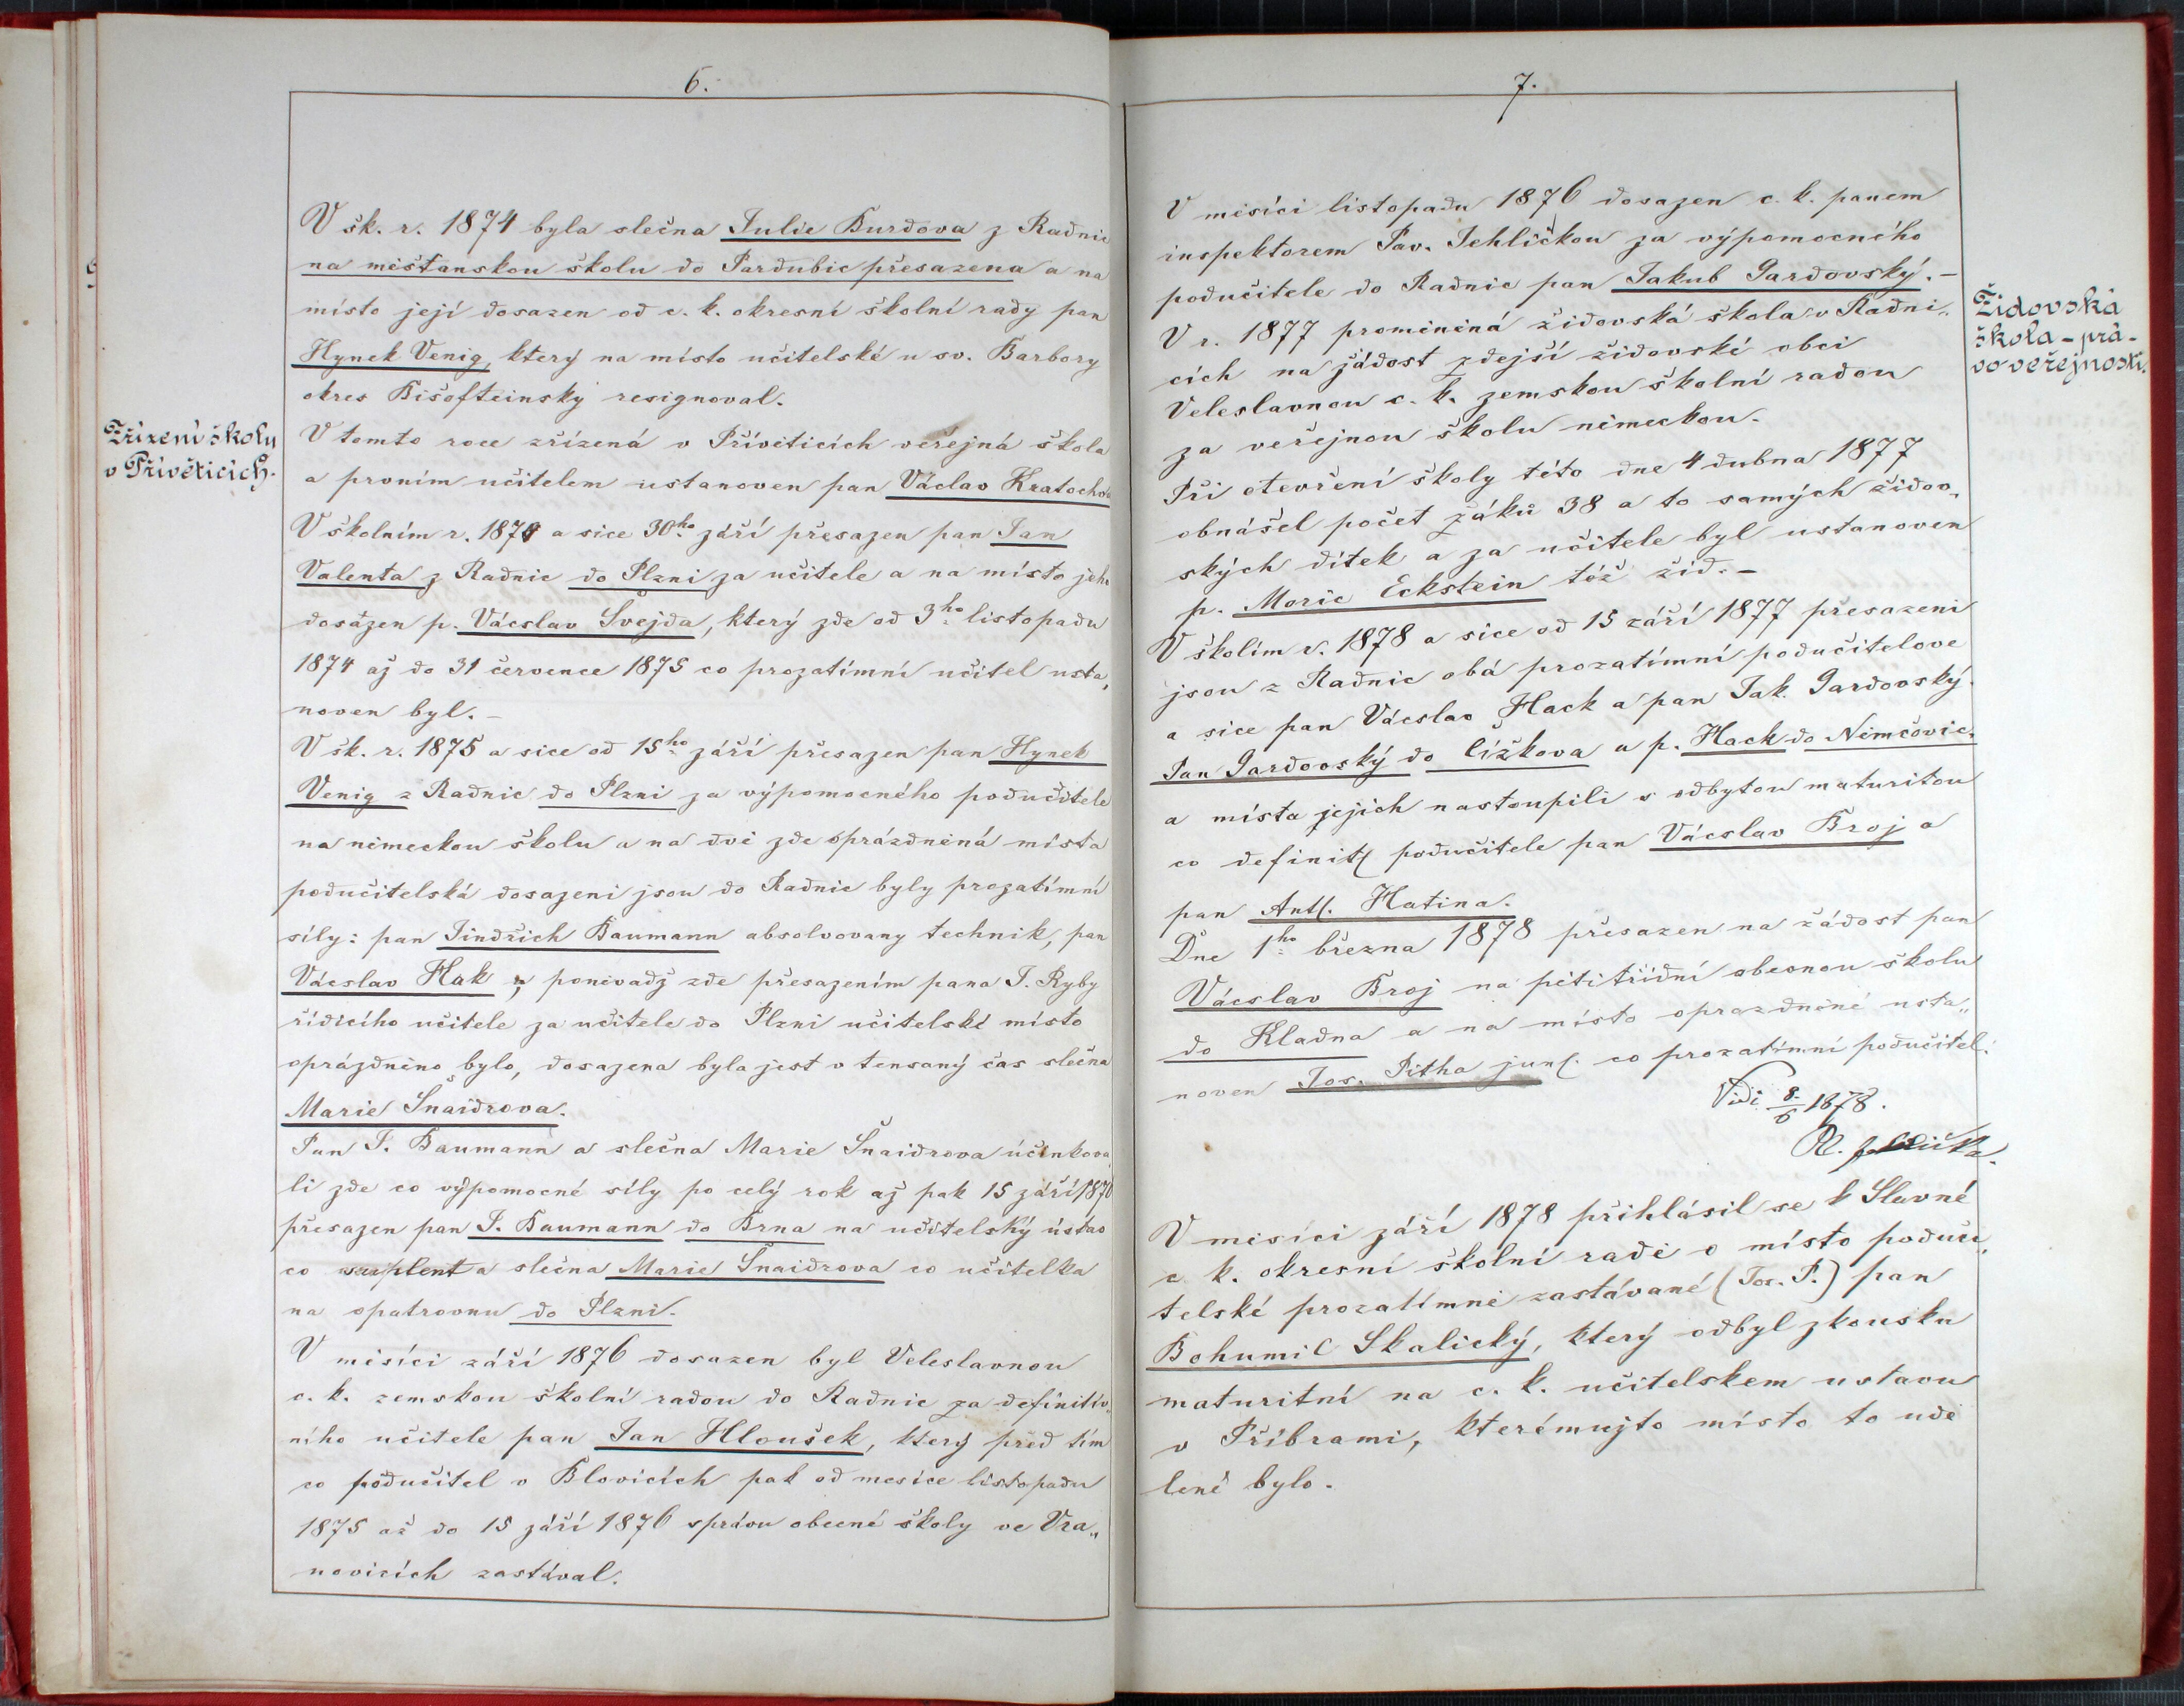 6.
V šk. r. 1874 byla slečna Julie Burdova z Radnic
na měšťanskou školu do Pardubic přesazena a na
místo její dosazen od c. k. okresní školní rady pan
Hynek Venig, který na místo učitelské u sv. Barbory
okres Bišofteinský resignoval.
Zřízení školy
v Přívěticích.
V tomto roce zřízená v Přívěticích veřejná škola
a prvním učitelem ustanoven pan Václav Kratochvíl
V školním r. 1874 a sice 30ho září přesazen pan Jan
Valenta z Radnic do Plzni za učitele a na místo jeho
dosázen p. Vácslav Švejda, který zde od 3ho listopadu
1874 až do 31 července 1875 co prozatímní učitel usta„
noven byl. –
V šk. r. 1875 a sice od 15ho září přesazen pan Hynek
Venig z Radnic do Plzni za výpomocného podučitele
na německou školu a na dvě zde oprázdněná místa
podučitelská dosazeni jsou do Radnic byly prozatímní
síly: pan Jindřich Baumann absolvovany technik, pan
Vácslav Hak ; poněvadž zde přesazením pana J. Ryby
řídicího učitele za učitele do Plzni učitelské místo
oprázdněno bylo, dosazena byla jest v tensamý čas slečna
Marie Šnaidrova.
Pan J. Baumann a slečna Marie Šnaidrova účinkova„
li zde co výpomocné síly po celý rok až pak 15 září 1876
přesazen pan J. Baumann do Brna na učitelský ústav
co suplent a slečna Marie Šnaidrova co učitelka
na opatrovnu do Plzni.
V měsíci září 1876 dosazen byl Veleslavnou
c. k. zemskou školní radou do Radnic za definitiv„
ního učitele pan Jan Hloušek, který před tím
co podučitel v Blovicích pak od mesíce listopadu
1875 až do 15 září 1876 správu obecné školy ve Vra„
novicích zastával.
7.
V měsíci listopadu 1876 dosazen c. k. panem
inspektorem Pav. Jehličkou za výpomocného
podučitele do Radnic pan Jakub Gardovský. –
Židovská
škola – prá-
vo veřejnosti.
V r. 1877 proměněná židovská škola v Radni„
cích na žádost zdejší židovské obci
Veleslavnou c. k. zemskou školní radou
za veřejnou školu německou.
Při otevření školy této dne 4 dubna 1877
obnášel počet žáků 38 a to samých židov„
ských dítek a za učitele byl ustanoven
p. Moric Eckstein též žid. –
V školím r. 1878 a sice od 15 září 1877 přesazeni
jsou z Radnic obá prozatímní podučitelove
a sice pan Vácslav Hack a pan Jak. Gardovský.
Pan Gardovský do Čížkova a p. Hack do Němčovic.
a místa jejich nastoupili s odbytou maturitou
co definit. podučitele pan Vácslav Broj a
pan Ant. Hatina.
Dne 1ho března 1878 přesazen na žádost pan
Vácslav Broj na pětitřídní obecnou školu
do Kladna a na místo oprazdněné usta„
noven Jos. Pitha jun. co prozatímní podučitel.
Vidi 8/6 1878.
V měsíci září 1878 přihlásil se k Slavné
c. k. okresní školní radě o místo poduči„
telské prozatímně zastávané (Jos. P.) pan
Bohumil Skalický, který odbyl zkousku
maturitní na c. k. učitelskem ustavu
v Příbrami, kterémužto místo to udě
leně bylo.